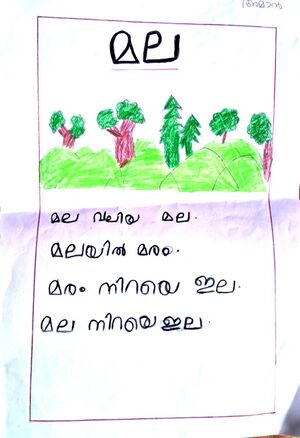 മല
മല വലിയ മല.
മലയിൽ മരം.
മരം നിറയെ ഇല.
മല നിറയെ ഇല.